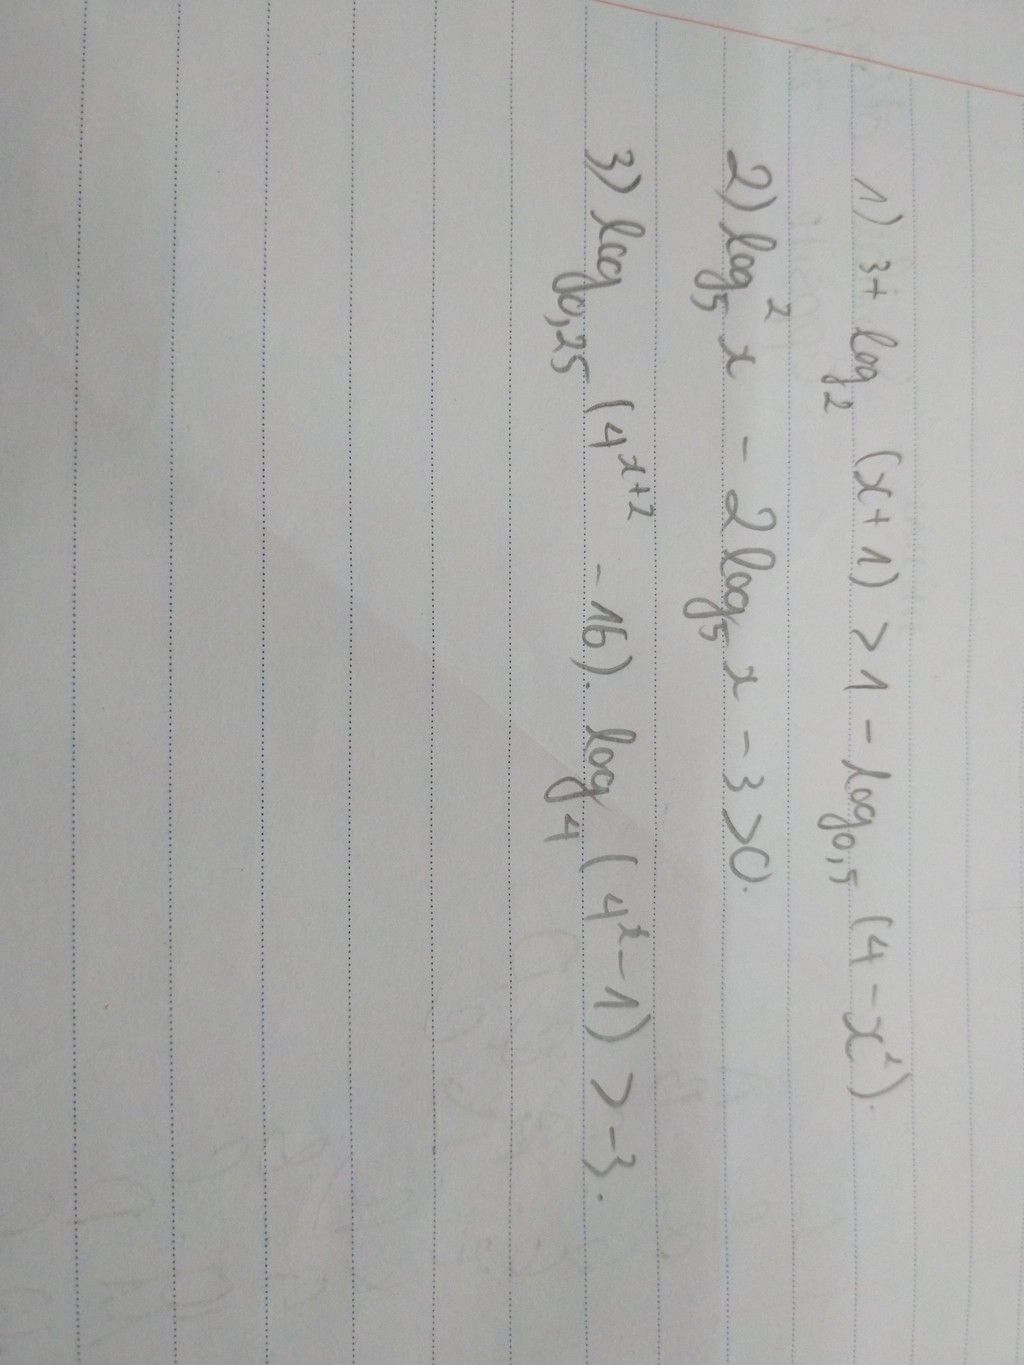 1) 3 + log₂ (x+1) > 1 - log₀,₅ (4 - x²).
2) log₅² x - 2 log₅ x - 3 > 0.
3) log₀,₂₅ (4ˣ⁺² - 16). log₄ (4ˣ - 1) > -3.